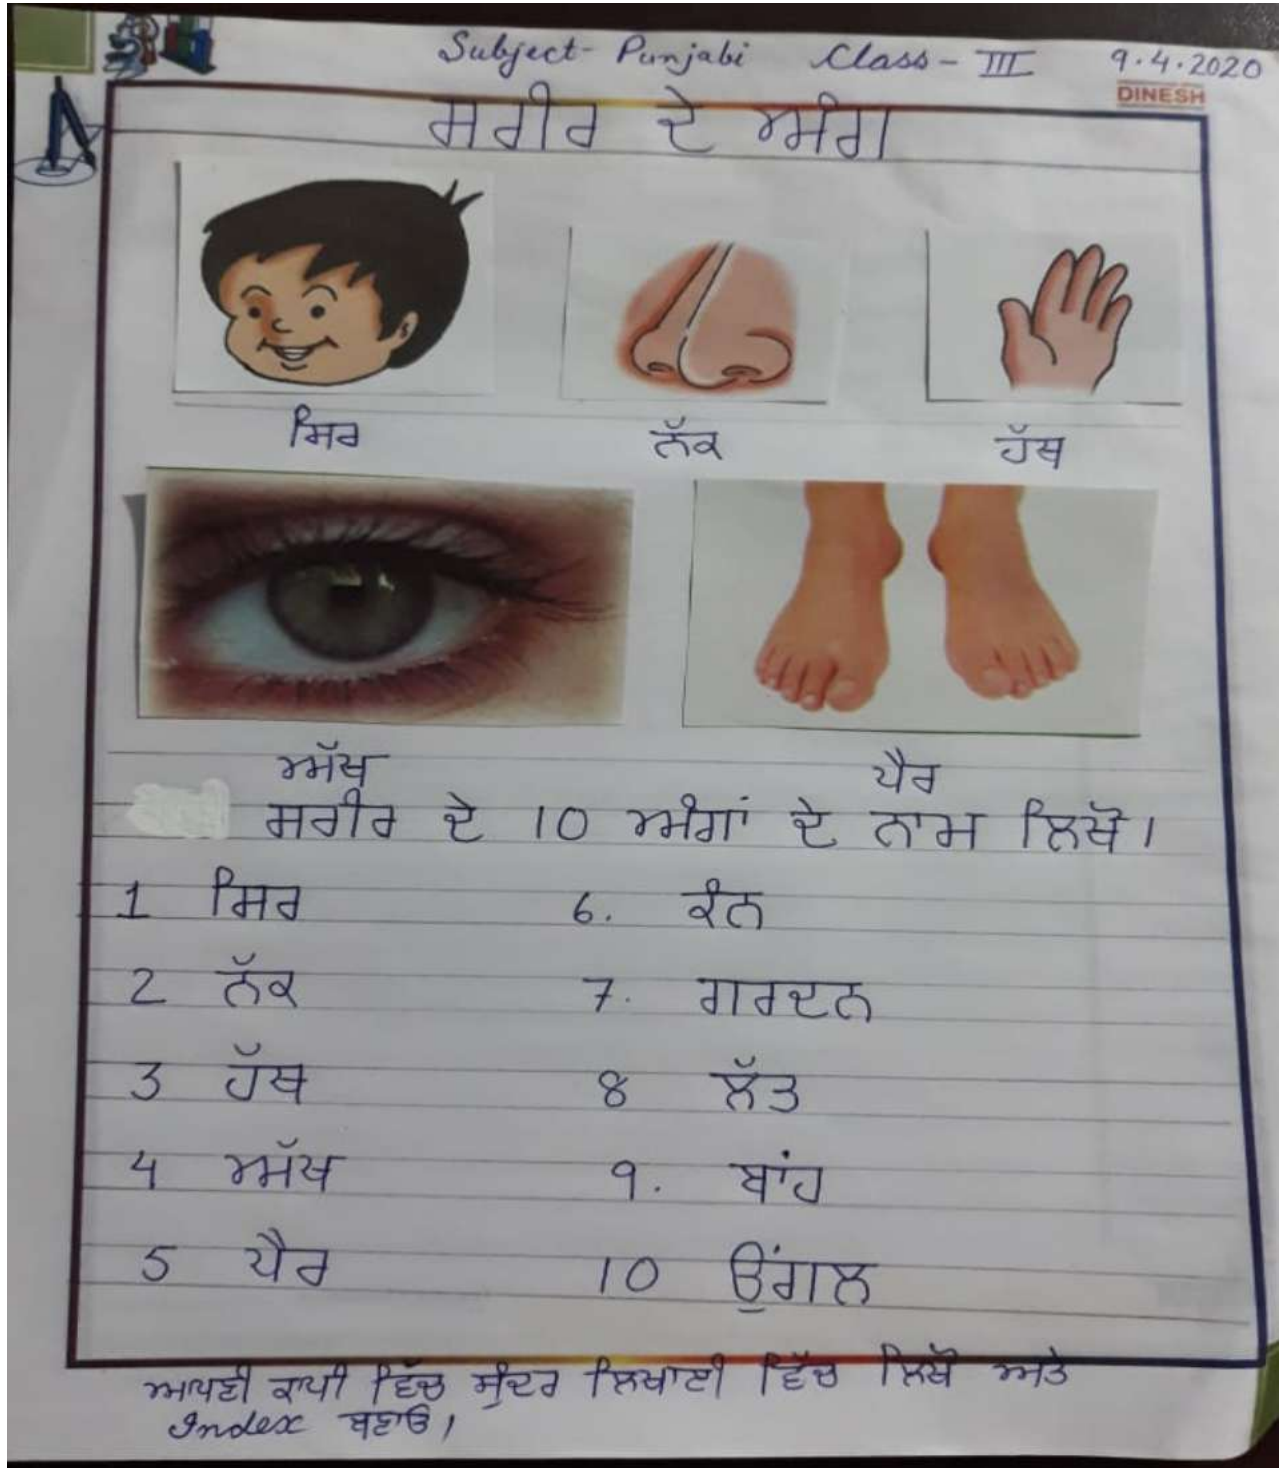 Subject- Punjabi Class - III 9.4.2020
DINESH
ਸਰੀਰ ਦੇ ਅੰਗ
ਸਿਰ ਨੱਕ ਹੱਥ
ਅੱਖ ਪੈਰ
ਸਰੀਰ ਦੇ 10 ਅੰਗਾਂ ਦੇ ਨਾਮ ਲਿਖੋ।
1 ਸਿਰ 6. ਕੰਨ
2 ਨੱਕ 7. ਗਰਦਨ
3 ਹੱਥ 8 ਲੱਤ
4 ਅੱਖ 9. ਬਾਂਹ
5 ਪੈਰ 10 ਉਂਗਲ
ਆਪਣੀ ਕਾਪੀ ਵਿੱਚ ਸੁੰਦਰ ਲਿਖਾਈ ਵਿੱਚ ਲਿਖੋ ਅਤੇ
Index ਬਣਾਓ।